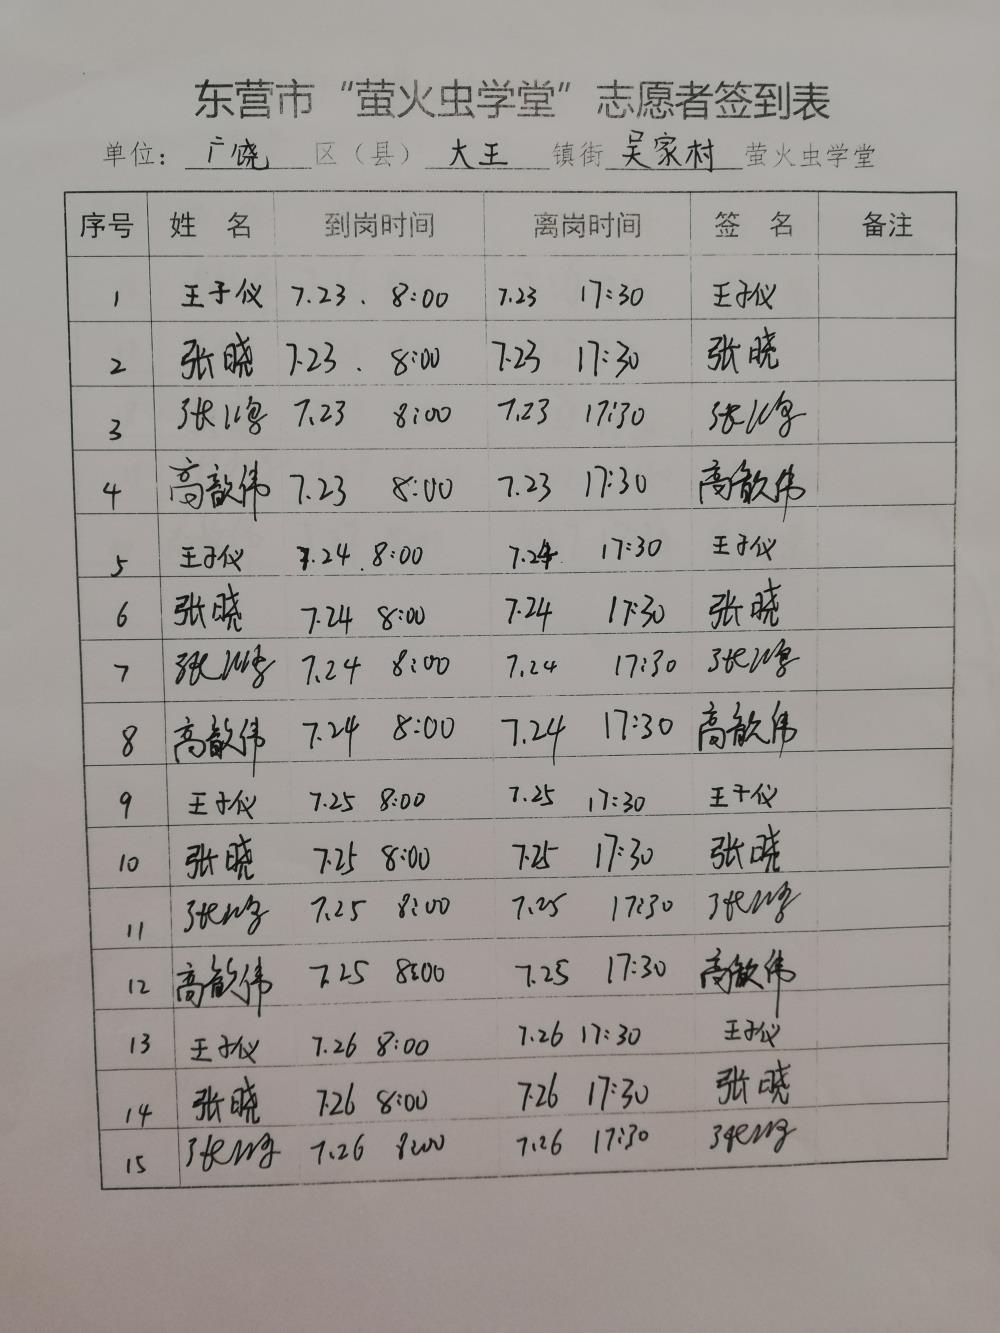 东营市“萤火虫学堂”志愿者签到表
单位：广饶 区（县） 大王 镇街 吴家村 萤火虫学堂
序号 姓 名 到岗时间 离岗时间 签 名 备注
1 王子仪 7.23. 8:00 7.23 17:30 王子仪
2 张晓 7.23. 8:00 7.23 17:30 张晓
3 张 7.23 8:00 7.23 17:30 张
4 高歆伟 7.23 8:00 7.23 17:30 高歆伟
5 王子仪 7.24.8:00 7.24 17:30 王子仪
6 张晓 7.24 8:00 7.24 17:30 张晓
7 张 7.24 8:00 7.24 17:30 张
8 高歆伟 7.24 8:00 7.24 17:30 高歆伟
9 王子仪 7.25 8:00 7.25 17:30 王子仪
10 张晓 7.25 8:00 7.25 17:30 张晓
11 张 7.25 8:00 7.25 17:30 张
12 高歆伟 7.25 8:00 7.25 17:30 高歆伟
13 王子仪 7.26 8:00 7.26 17:30 王子仪
14 张晓 7.26 8:00 7.26 17:30 张晓
15 张 7.26 8:00 7.26 17:30 张